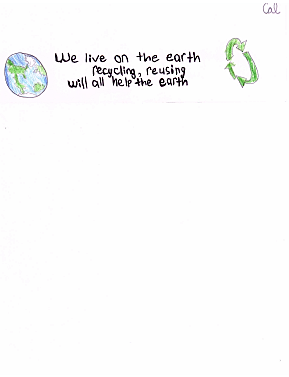 Cal
We live on the earth
recycling, reusing
will all help the earth